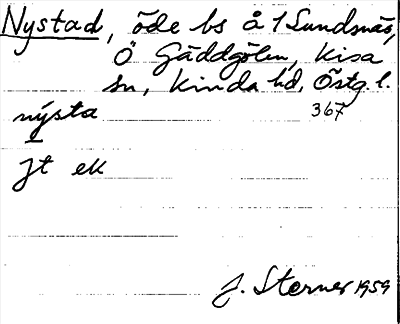 Nystad, öde bs å 1 Sundsnäs,
Ö Gäddgölen, Kisa
sn, Kinda hd, Östg. l.
nýsta 367
I
Jt ek
J. Sterner 1959